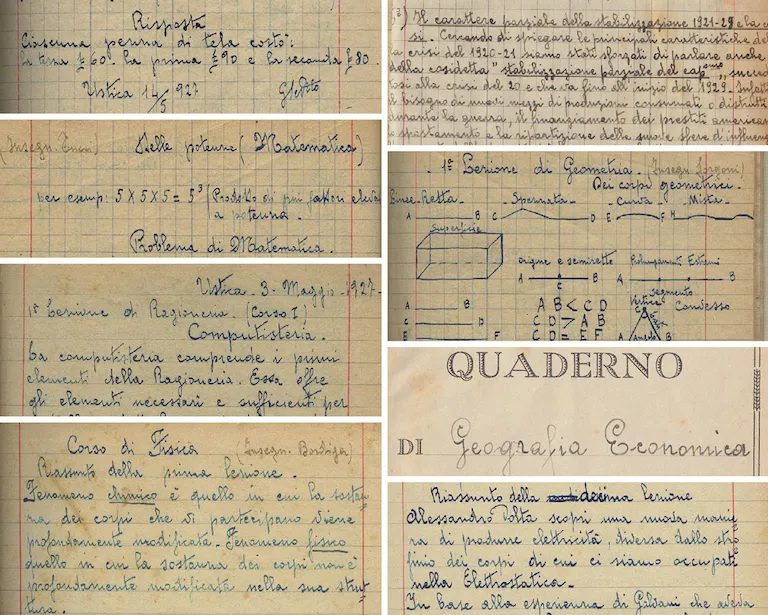 Risposta
Ciascuna penna di tela costò:
la terza £ 60. la prima £ 90 e la seconda £ 80.
Ustica 14/5 927
(Insegn.
Delle potenze (Matematica)
per esemp: 5 X 5 X 5 = 5³ (Prodotto di più fattori elevat
a potenza.
Problema di Matematica.
Ustica. 3. Maggio. 1927-
1ª Lezione di Ragioneria. (Corso I)
Computisteria.
La computisteria comprende i primi
elementi della Ragioneria. Essa offre
gli elementi necessari e sufficienti per
Corso di Fisica (Insegn. Bordiga)
Riassunto della prima lezione.
Fenomeno chimico è quello in cui la sostan-
za dei corpi che vi partecipano viene
profondamente modificata. Fenomeno fisico
quello in cui la sostanza dei corpi non è
profondamente modificata nella sua strut-
tura.
2) Il carattere parziale della stabilizzazione 1921-29 e la c
si. Cercando di spiegare le principali caratteristiche del
la crisi del 1920-21 siamo stati sforzati di parlare anche
della cosidetta "stabilizzazione parziale del cap.smo" succed
tosi alla crisi del 20 e che va fino all'inizio del 1929. Infatti
il bisogno di nuovi mezzi di produzioni consumati o distrutti
durante la guerra, il finanziamento dei prestiti american
o spostamento e la ripartizione delle nuove sfere d'influenz
1ª Lezione di Geometria. (Insegn. Sorgoni)
Dei corpi geometrici.
Linee-Retta - Spezzata - Curva - Mista -
A B C D E F H
Superficie
origine e semirette Prolungamenti Estremi
A C B A B
segmento
A B A B < C D Vertice Convesso
C D C D > A B
E F C D = E F A Angolo B
QUADERNO
DI Geografia Economica
Riassunto della decima lezione
Alessandro Volta scoprì una nuova manie-
ra di produrre elettricità, diversa dallo stro
finio dei corpi di cui ci siamo occupati
nella Elettrostatica.
In base alla esperienza di Galvani, che aveva